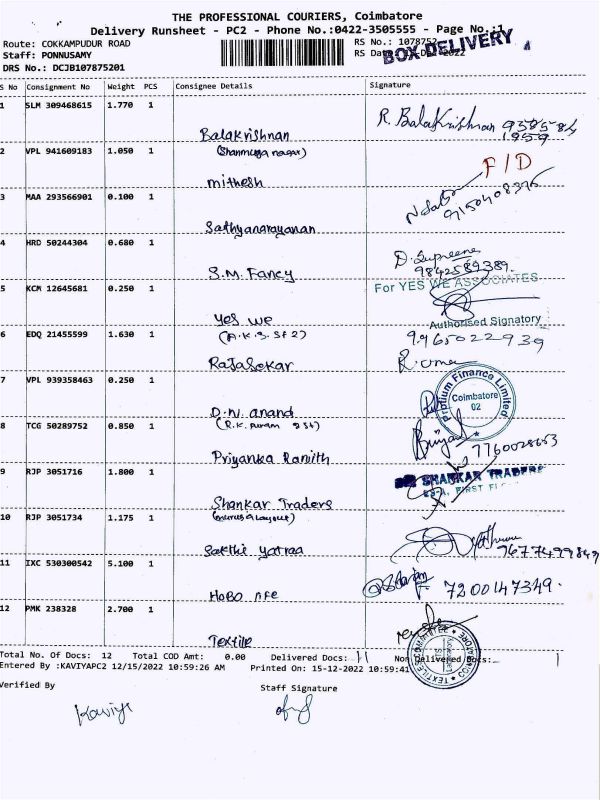 THE PROFESSIONAL COURIERS, Coimbatore
Delivery Runsheet - PC2 - Phone No.:0422-3505555 - Page No.:1
Route: COKKAMPUDUR ROAD
RS No.: 1078752
BOX DELIVERY
Staff: PONNUSAMY
DRS No.: DCJB107875201
S No Consignment No Weight PCS Consignee Details Signature
1 SLM 309468615 1.770 1
Balakrishnan
R. Balakrishnan
2 VPL 941609183 1.050 1
(Shanmuga nagar)
mithesh
F/D
3 MAA 293566901 0.100 1
Sathyanarayanan
9150408376
4 HRD 50244304 0.680 1
S.M. Fancy
9842589389.
5 KCM 12645681 0.250 1
Yes we
For YES WE ASSOCIATES
Authorised Signatory
6 EDQ 21455599 1.630 1
(A.K.S. St 2)
RaJaSekar
9965022939
R. uma
7 VPL 939358463 0.250 1
D.N. anand
Probium Finance Limited
Coimbatore
02
8 TCG 50289752 0.850 1
(R.K. Puram 2 St)
Priyanka Ranith
7760028653
9 RJP 3051716 1.800 1
Shankar Traders
SHANKAR TRADERS
10 RJP 3051734 1.175 1
Sakthi yatraa
11 IXC 530300542 5.100 1
HoBo
7200147349.
12 PMK 238328 2.700 1
Textile
TEXTILE COMMITTEE
Total No. Of Docs: 12 Total COD Amt: 0.00 Delivered Docs: 11 Non Delivered Docs: 1
Entered By :KAVIYAPC2 12/15/2022 10:59:26 AM Printed On: 15-12-2022 10:59:41
Verified By
Staff Signature
Kaviya